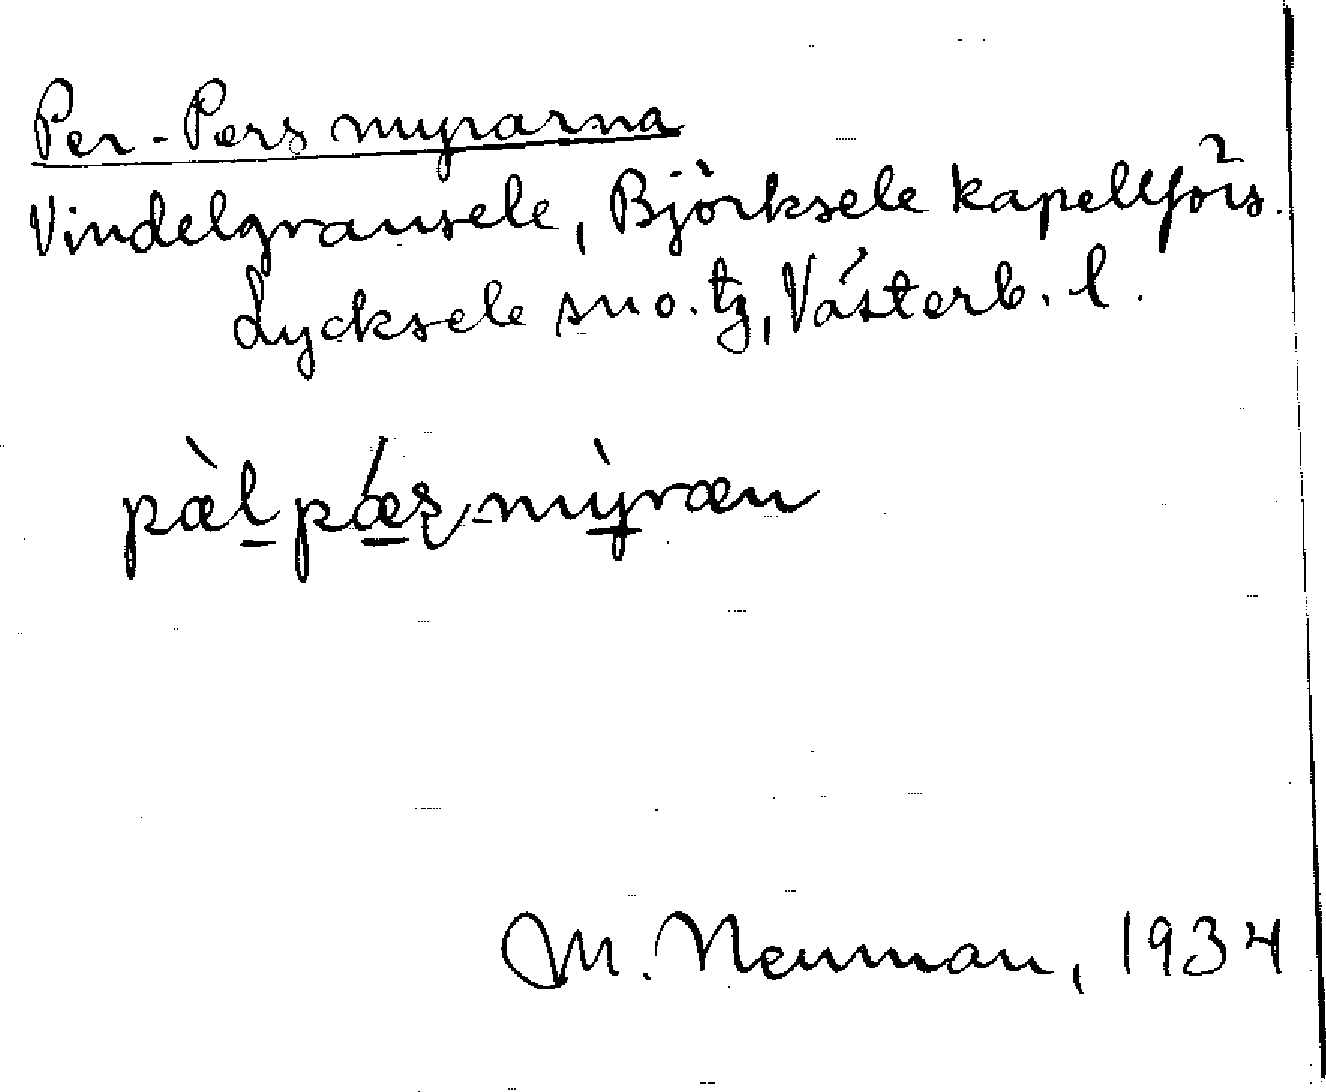 Per-Pers myrarna
Vindelgransele, Björksele kapellförs.
Lycksele sn o. tg, Västerb. l.
pæ̀l pǽʂ-mỳræn
M. Neuman, 1934